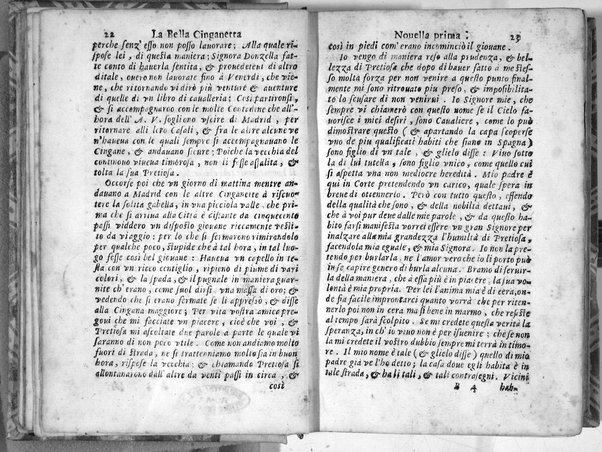 22 La Bella Cinganetta
perche senz' esso non posso lauorare; Alla quale ri-
spose lei, di questa maniera; Signora Donzella fat-
te conto di hauerla sentita, & prouedeteui di altro
ditale, ouero non lauorate fino à Venerdì, che vie-
ne, che ritornando vi dirò più venture & auenture
di quelle di vn libro di caualleria; Così partironsi,
& si accompagnaro con le molte Contadine che all'
hora dell' A. V. sogliono vscire di Madrid, per
ritornare alli loro Casali, & fra le altre alcune ve
n'haueua con le quali sempre si accompagnauano le
Cingane, & andauano sicure; Poiche la vecchia del
continouo viueua timorosa, non li fosse assalita, &
tolta la sua Pretiosa.
Occorse poi che vn giorno di mattina mentre an-
dauano a Madrid con le altre Cinganette à riscuo-
tere la solita gabella, in vna picciola valle, che pri-
ma che si arriua alla Città è distante da cinquecento
passi viddero vn disposto giouane riccamente vesti-
to da viaggio: per lo che si fermorono rimirandolo
per qualche poco, stupide che à tal hora, in tal luo-
go fesse così bel giouane: Haueua vn capello in te-
sta con vn ricco centiglio, ripieno di piume di varij
colori, & la spada, & il pugnale in maniera guar-
nite ch' erano, come dirsi suol, vna massa di oro; &
vedendo che si erano fermate se li appressò, & disse
alla Cingana maggiore; Per vita vostra amica pre-
goui che mi facciate vn piacere, cioè che voi, &
Pretiosa mi ascoltate due parole a parte le quali vi
saranno di non poco vtile. Come non andiamo molto
fuori di strada, ne si tratteniamo molto sia in buon
hora, rispose la vecchia; & chiamando Pretiosa si
allontanarono dall'altre da venti passi in circa, &
così
Nouella prima. 23
così in piedi com'erano incominciò il giouane.
Io vengo di maniera reso alla prudenza, & bel-
lezza di Pretiosa che dopo di hauer fatto à me stes-
so molta forza per non venire a questo punto final-
mente mi sono ritrouato piu preso, & impossibilita-
to lo scusare di non venirui. Io Signore mie, che
sempre vi chiamerò con questo nome se il Cielo fa-
uorisce i miei desiri, sono Caualiere, come lo può
dimostrare questo (& apartando la capa scoperse
vno de più qualificati habiti che siano in Spagna)
sono figlio di vn tale, & glielo disse: Viuo sotto
la di lui tutella, sono figlio vnico, come quello cui
si aspetta vna non mediocre heredità. Mio padre è
qui in Corte pretendendo vn carico, quale spera in
breue di ottennerlo. Però con tutto questo, essendo
della qualità che sono, & della nobiltà dettaui, &
che à voi pur deue dalle mie parole, & da questo ha-
bito farsi manifesta vorrei essere vn gran Signore per
inalzare alla mia grandezza l'humiltà di Pretiosa,
facendola mia eguale, & mia Signora. Io non la pre-
tendo per burlarla, ne l'amor vero che io li porto può
in se capire genero di burla alcuna. Bramo di seruir-
la della maniera, che à essa più è in piacere, la sua vo-
lontà è mia propria. Per lei l'anima mia è di cera, on-
de sia facile improntarci quanto vorrà che per riten-
nerlo poi non in cera ma si bene in marmo, che resiste
al tempo sarà scolpito. Se mi credete questa verità la
speranza, in ch'io viuo non è per isuenire: che se non
la mi credete il vostro dubbio sempre mi terrà in timo-
re. Il mio nome è tale (& glielo disse) quello di mio
padre già ve l'ho detto; la casa doue egli habita è in
tale strada, & ha li tali, & tali contrasegni. Vicini
B 4